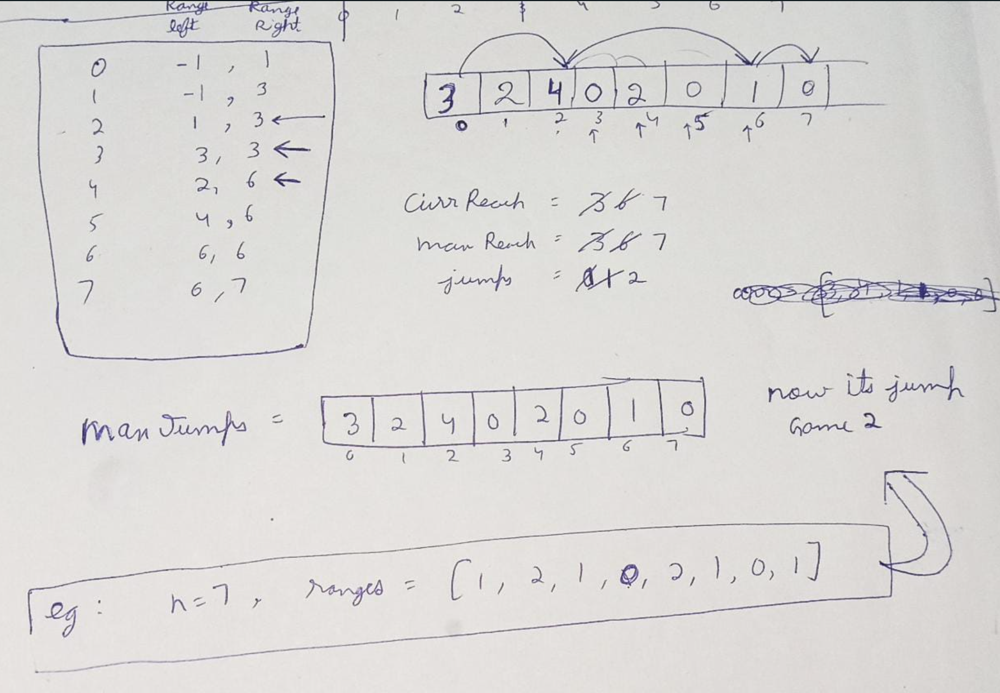 Range Range
left Right
0 1 2 3 4 5 6 7
0 -1 , 1
1 -1 , 3
2 1 , 3 ←
3 3 , 3 ←
4 2 , 6 ←
5 4 , 6
6 6 , 6
7 6 , 7
3 2 4 0 2 0 1 0
0 1 2 3 4 5 6 7
Curr Reach = 3 6 7
man Reach = 3 6 7
jumps = 0 1 2
man Jumps = 3 2 4 0 2 0 1 0
0 1 2 3 4 5 6 7
now its jump
Game 2
eg : n=7 , ranges = [1, 2, 1, 0, 2, 1, 0, 1]